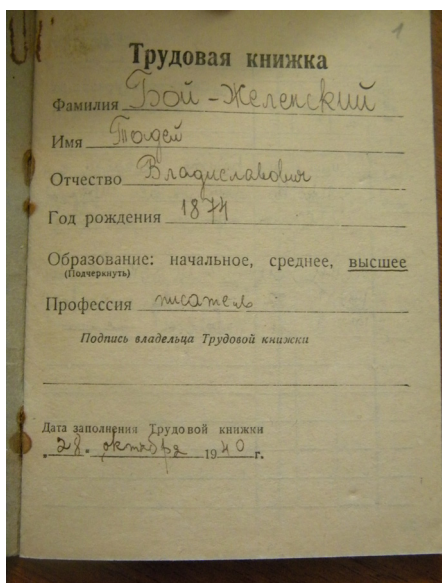 1
Трудовая книжка
Фамилия Бой-Желенский
Имя Тадей
Отчество Владиславович
Год рождения 1874
Образование: начальное, среднее, высшее
(Подчеркнуть)
Профессия писатель
Подпись владельца Трудовой книжки
Дата заполнения Трудовой книжки
„28“ октября 1940 г.